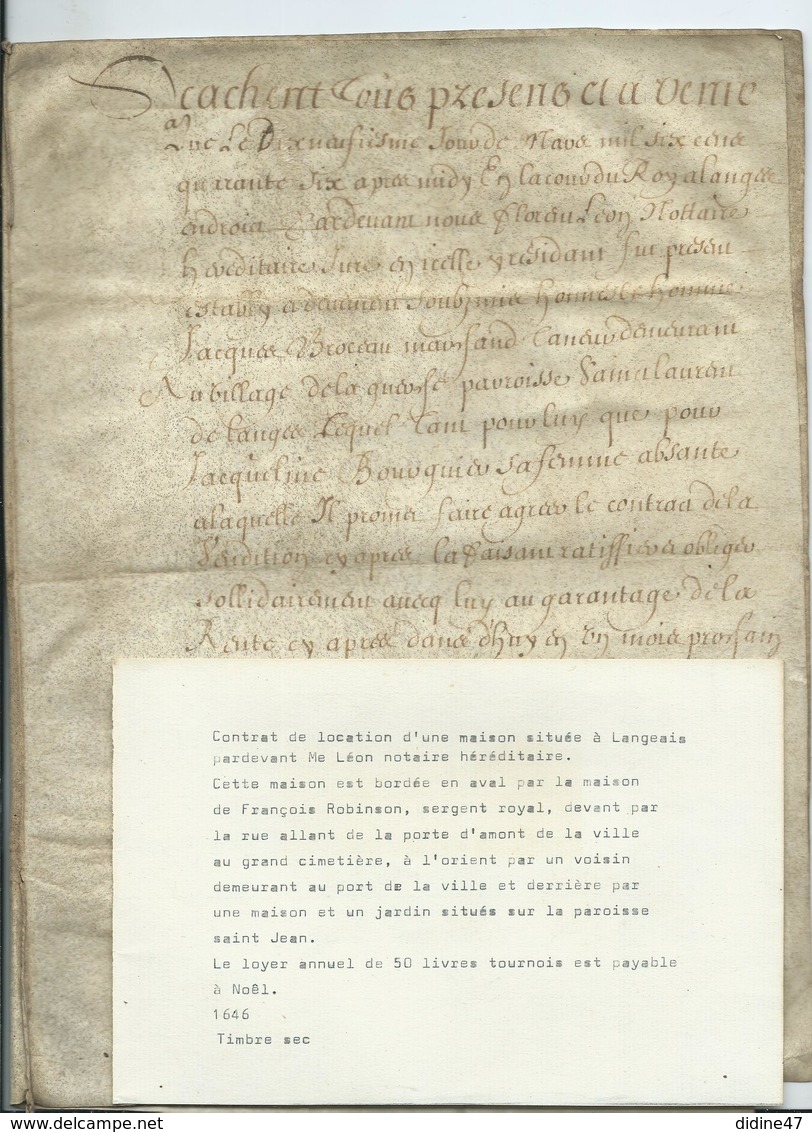 Scachent Tous presens et a venir
Que Le Dixneufiesme Jour de Mars mil six cens
quarante six apres midy En la cour du Roy a langes
endroict Pardevant nous Floren Leon Nottaire
hereditaire Juré en icelle y residant fut present
estably et deuement soubzmis honneste homme
Jacques Broceau marchand Taneur demeurant
Au village de la paroisse Sainct laurent
de langes Lequel tant pour luy que pour
Jacqueline Bourguier sa femme absante
a laquelle Il promet faire agreer le contract de la
Vendition cy apres la faisant ratiffier et obliger
sollidairement avecq luy au garantage de la
Rente cy apres dans d'huy en un mois prochain
Contrat de location d'une maison située à Langeais
pardevant Me Léon notaire héréditaire.
Cette maison est bordée en aval par la maison
de François Robinson, sergent royal, devant par
la rue allant de la porte d'amont de la ville
au grand cimetière, à l'orient par un voisin
demeurant au port de la ville et derrière par
une maison et un jardin situés sur la paroisse
saint Jean.
Le loyer annuel de 50 livres tournois est payable
à Noël.
1646
Timbre sec
didine47